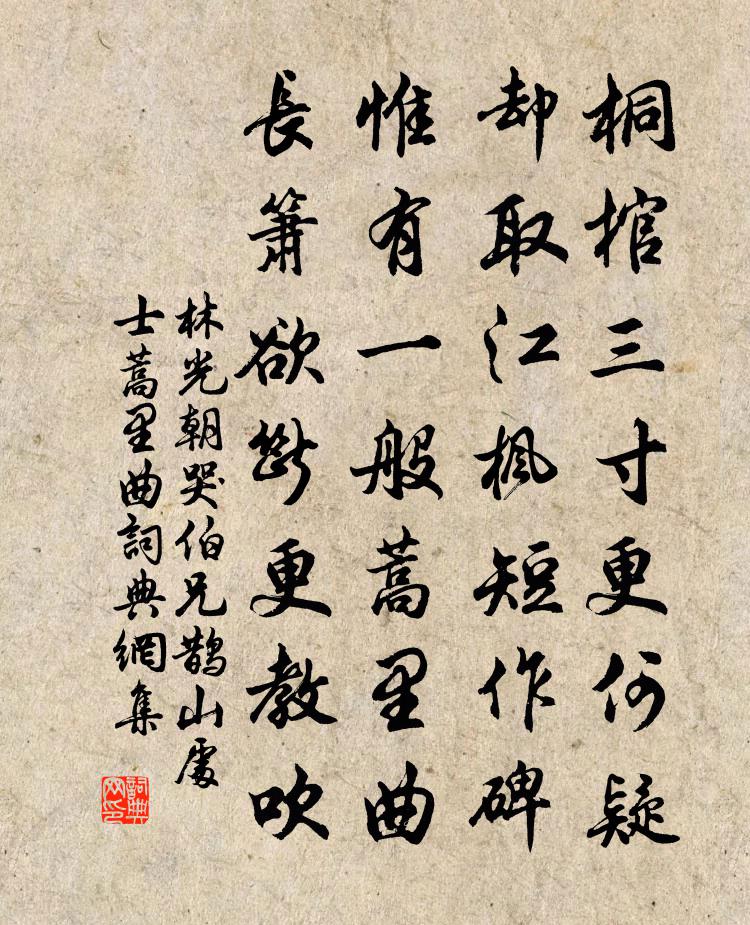 桐棺三寸更何疑
却取江楓短作碑
惟有一般蒿里曲
長簫欲斷更教吹
林光朝哭伯兄鵲山處
士蒿里曲詞典網集
詞典
网印